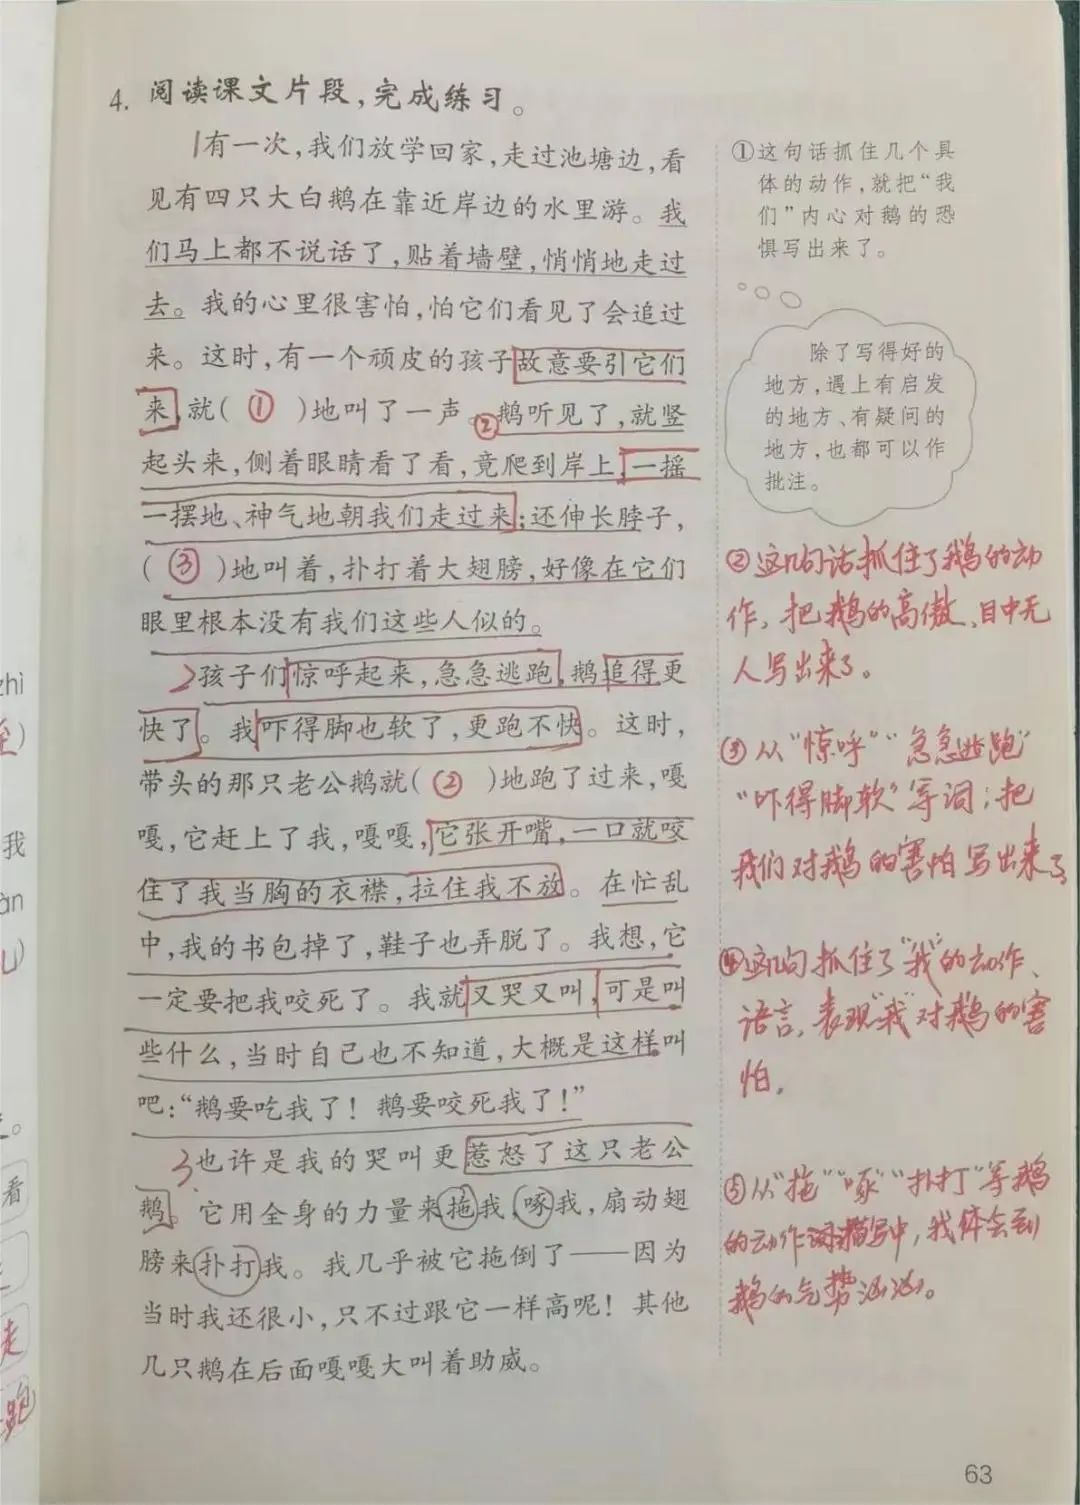 4. 阅读课文片段，完成练习。
1有一次，我们放学回家，走过池塘边，看
见有四只大白鹅在靠近岸边的水里游。我
们马上都不说话了，贴着墙壁，悄悄地走过
去。我的心里很害怕，怕它们看见了会追过
来。这时，有一个顽皮的孩子故意要引它们
来，就( ① )地叫了一声。②鹅听见了，就竖
起头来，侧着眼睛看了看，竟爬到岸上，一摇
一摆地、神气地朝我们走过来；还伸长脖子，
( ③ )地叫着，扑打着大翅膀，好像在它们
眼里根本没有我们这些人似的。
2孩子们惊呼起来，急急逃跑，鹅追得更
快了。我吓得脚也软了，更跑不快。这时，
带头的那只老公鹅就( ② )地跑了过来，嘎
嘎，它赶上了我，嘎嘎，它张开嘴，一口就咬
住了我当胸的衣襟，拉住我不放。在忙乱
中，我的书包掉了，鞋子也弄脱了。我想，它
一定要把我咬死了。我就又哭又叫，可是叫
些什么，当时自己也不知道，大概是这样叫
吧：“鹅要吃我了！鹅要咬死我了！”
3也许是我的哭叫更惹怒了这只老公
鹅。它用全身的力量来拖我，啄我，扇动翅
膀来扑打我。我几乎被它拖倒了——因为
当时我还很小，只不过跟它一样高呢！其他
几只鹅在后面嘎嘎大叫着助威。
①这句话抓住几个具
体的动作，就把“我
们”内心对鹅的恐
惧写出来了。
除了写得好的
地方，遇上有启发
的地方、有疑问的
地方，也都可以作
批注。
②这几句话抓住了鹅的动
作，把鹅的高傲、目中无
人写出来了。
③从“惊呼”“急急逃跑”
“吓得脚软”等词；把
我们对鹅的害怕写出来了
④这几句抓住了“我”的动作、
语言，表现“我”对鹅的害
怕。
⑤从“拖”“啄”“扑打”等鹅
的动作词描写中，我体会到
鹅的气势汹汹。
zhì
至)
我
àn
看
走
跑
63